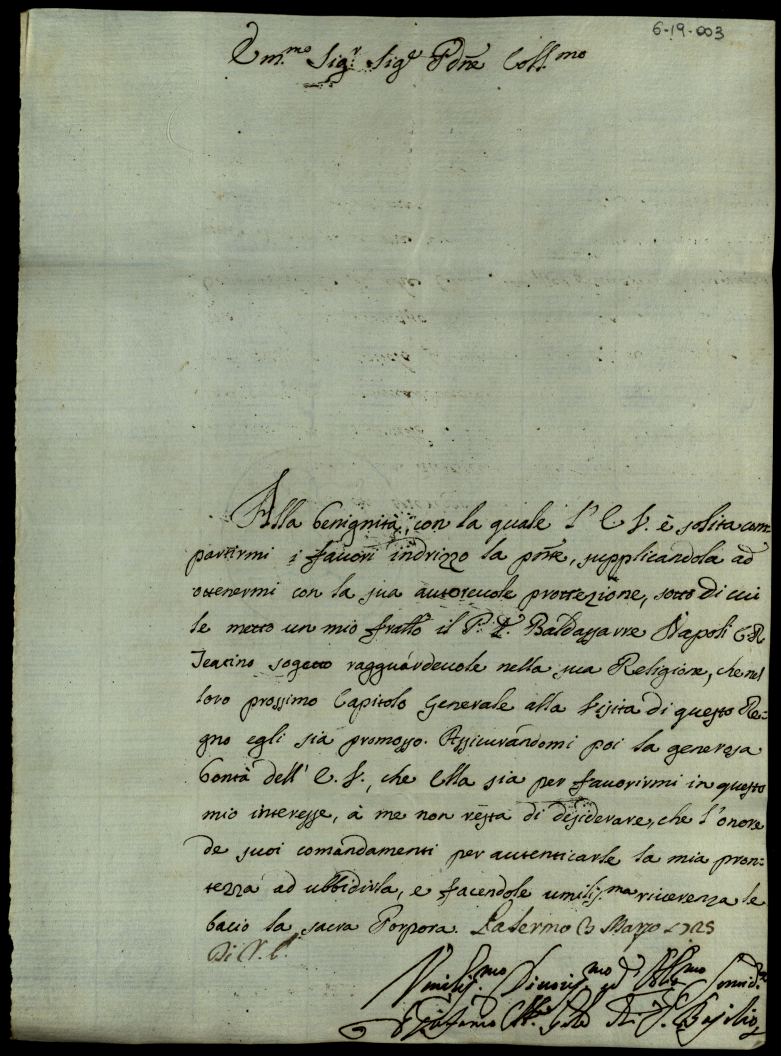 6-19-003
Em.mo Sig.r Sig.e Pdne Coll.mo
Alla benignità, con la quale l' E. V. è solita com-
partirmi i favori indrizzo la pnte, supplicandola ad
ottenermi con la sua autorevole protezione, sotto di cui
le metto un mio fratello il P. D. Baldassarre Napoli C. R.
Teatino sogetto ragguardevole nella sua Religione, che nel
loro prossimo Capitolo Generale alla Visita di questo Re-
gno egli sia promosso. Assicurandomi poi la generosa
bontà dell' E. V., che Ella sia per favorirmi in questo
mio interesse, à me non resta di desiderare, che l'onore
de suoi comandamenti per autenticarle la mia pron-
tezza ad ubbidirla, e facendole umiliss.ma riverenza le
bacio la sacra Porpora. Palermo Marzo 1725
Di V. E.
Umiliss.mo Divotiss.mo ed Obl.mo Servid.re
Epifanio di S. Basilio